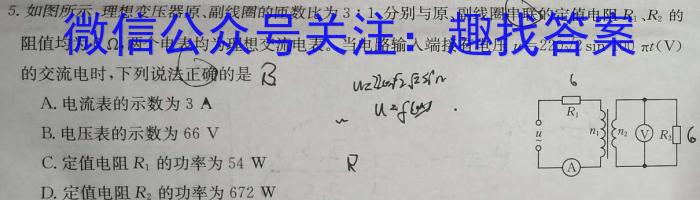 5. 如图所示,理想变压器原、副线圈的匝数比为 3∶1,分别与原、副线圈串联的定值电阻 R₁、R₂ 的
微信公众号关注：趣找答案
阻值均为 Ω,两个电表均为理想交流电表。当电路输入端接在电压 πt(V)
的交流电时,下列说法正确的是 B
A. 电流表的示数为 3 A
B. 电压表的示数为 66 V
C. 定值电阻 R₁ 的功率为 54 W
D. 定值电阻 R₂ 的功率为 672 W
R
6
R₁
u
~
n₁ n₂
V
R₂
6
A